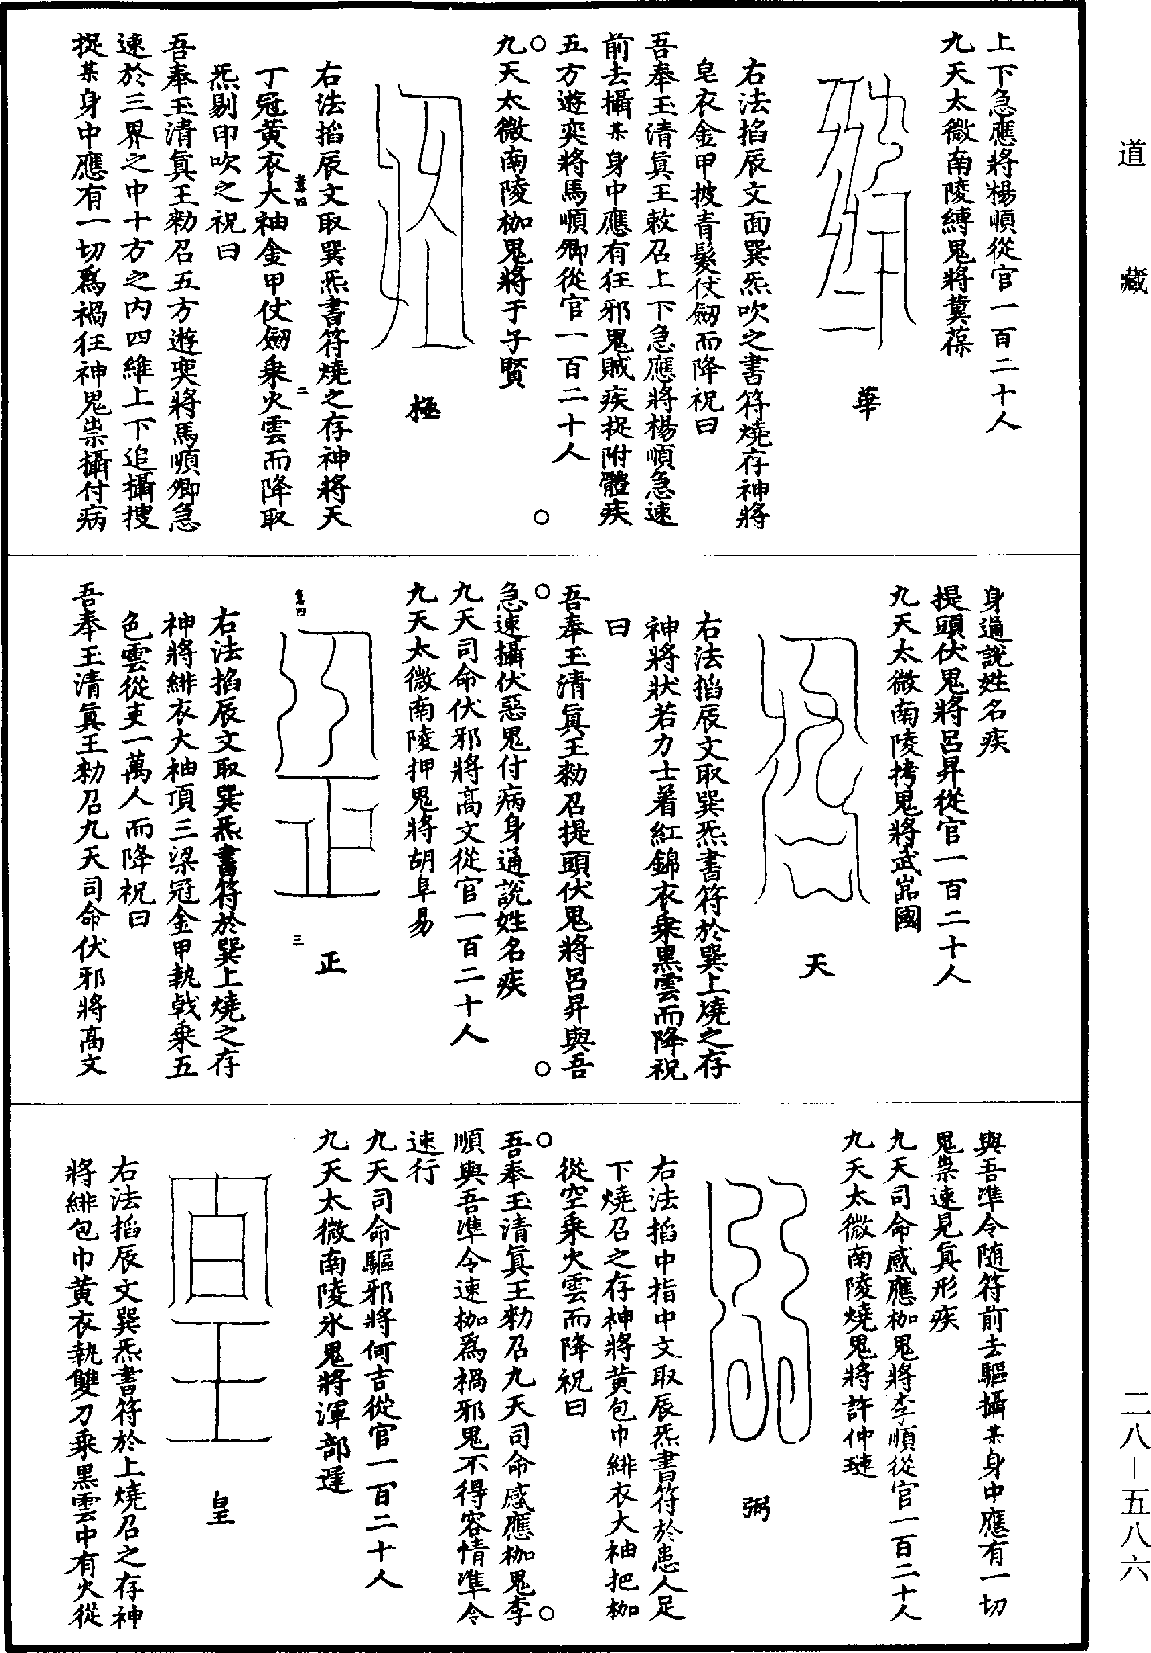 道藏
上下急應將楊順從官一百二十人
九天太微南陵縛鬼將冀葆
華
右法掐辰文面巽炁吹之書符燒存神將
皂衣金甲披青髮仗劒而降祝曰
吾奉玉清眞王敕召上下急應將楊順急速
前去攝某身中應有狂邪鬼賊疾捉附體疾
五方遊奕將馬順卿從官一百二十人
九天太微南陵枷鬼將于子賢
極
右法掐辰文取巽炁書符燒之存神將天
丁冠黃衣大袖金甲仗劒乘火雲而降取
炁剔印吹之祝曰
吾奉玉清眞王勑召五方遊奕將馬順卿急
速於三界之中十方之內四維上下追攝搜
捉某身中應有一切爲禍狂神鬼祟攝付病
身逥說姓名疾
提頭伏鬼將呂昇從官一百二十人
九天太微南陵拷鬼將武岊國
天
右法掐辰文取巽炁書符於巽上燒之存
神將狀若力士着紅錦衣乘黑雲而降祝
曰
吾奉玉清眞王勑召提頭伏鬼將呂昇與吾
急速攝伏惡鬼付病身通說姓名疾
九天司命伏邪將高文從官一百二十人
九天太微南陵押鬼將胡阜易
正
右法掐辰文取巽炁書符於巽上燒之存
神將緋衣大袖頂三梁冠金甲執戟乘五
色雲從吏一萬人而降祝曰
吾奉玉清眞王勑召九天司命伏邪將高文
與吾準令随符前去驅攝某身中應有一切
鬼祟速見眞形疾
九天司命感應枷鬼將李順從官一百二十人
九天太微南陵燒鬼將許仲璉
弼
右法掐中指中文取辰炁書符於患人足
下燒召之存神將黃包巾緋衣大袖把枷
從空乘火雲而降祝曰
吾奉玉清眞王勑召九天司命感應枷鬼李
順與吾準令速枷爲禍邪鬼不得容情準令
速行
九天司命驅邪將何吉從官一百二十人
九天太微南陵氷鬼將渾部遲
皇
右法掐辰文巽炁書符於上燒召之存神
將緋包巾黃衣執雙刀乘黑雲中有火從
二八—五八六